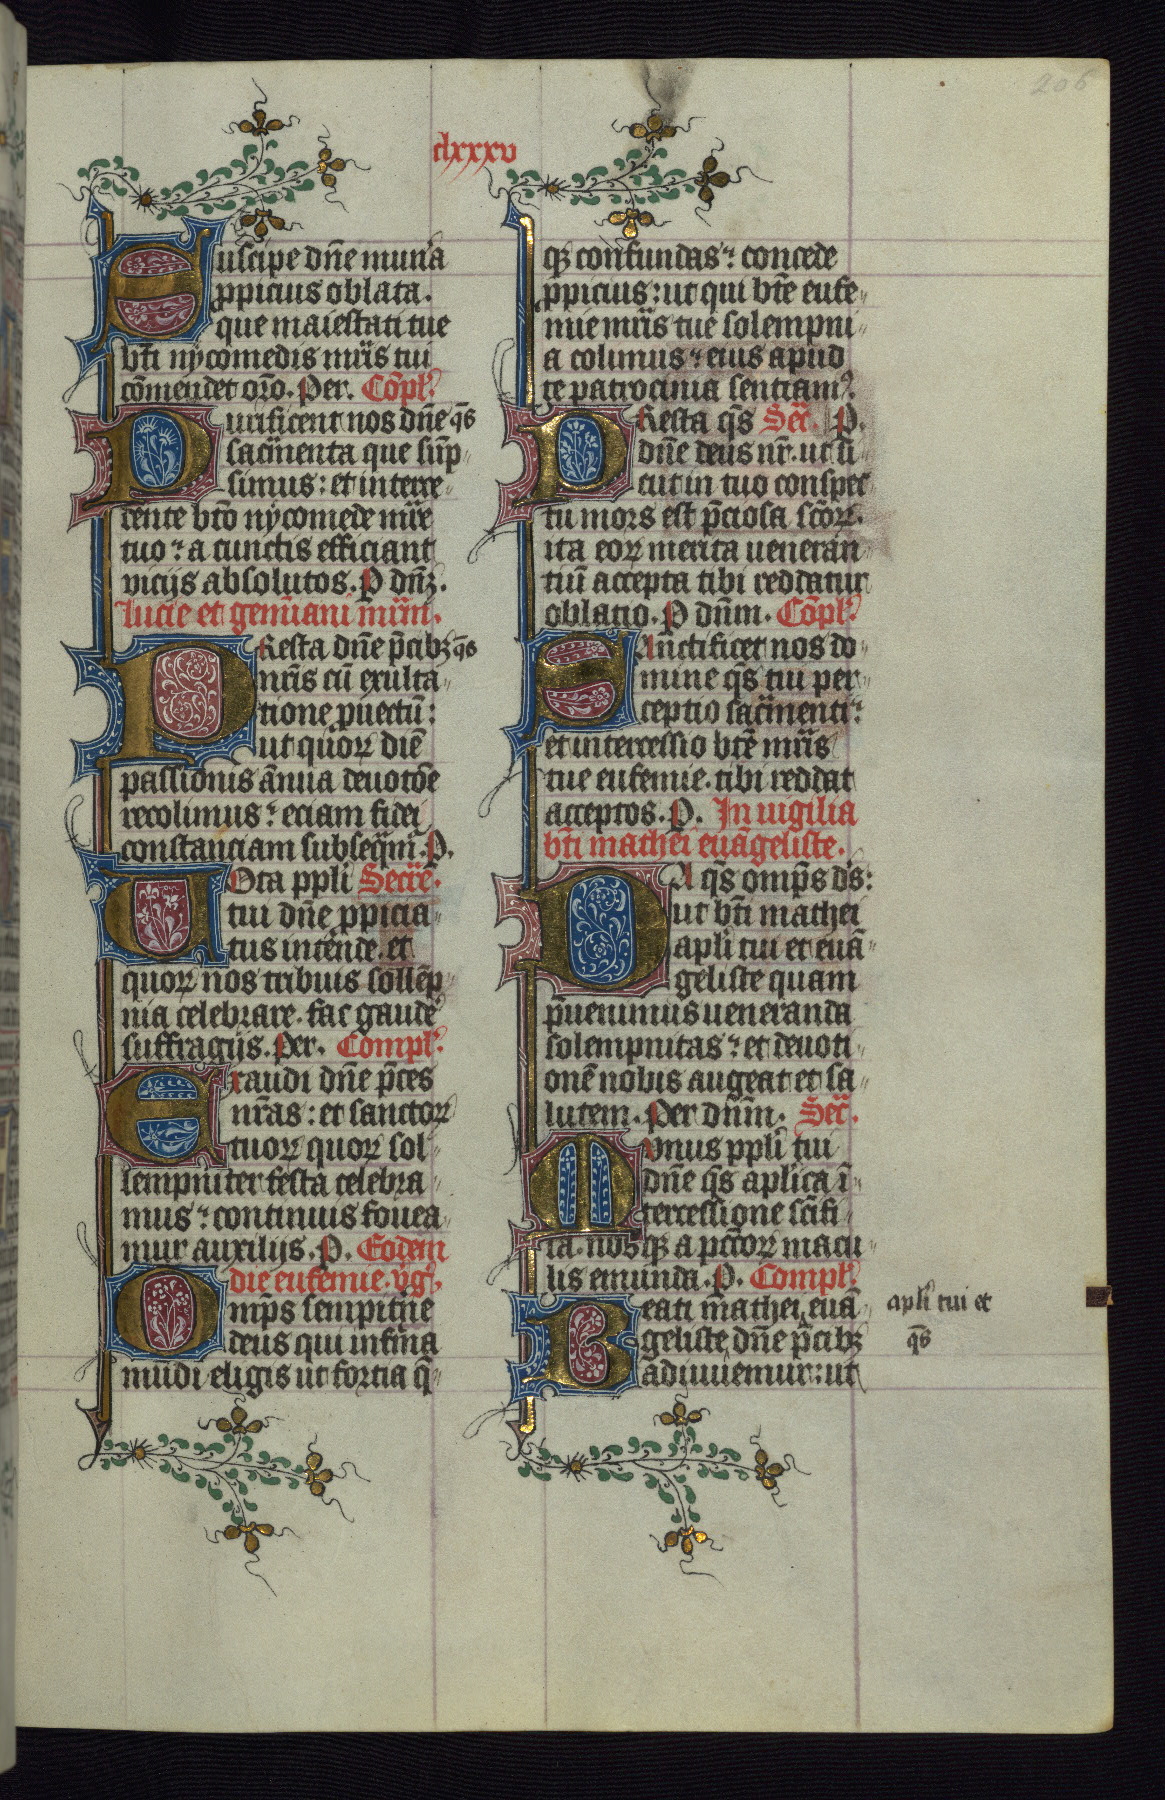 206
clxxxv
Suscipe dn̄e mun̄a
ppicius oblata.
que maiestati tue
bt̄i nycomedis mr̄is tui
cōmendet or̄o. Per. Cōpl'
Purificent nos dn̄e qs̄
sacr̄menta que sūp
simus: et interce
dente bt̄o nycomede mr̄e
tuo: a cunctis efficiant
vicijs absolutos. P dn̄ȝ.
Lucie et gemīani mr̄m.
PResta dn̄e p̄cibȝ qs̄
nr̄is cū exulta
tione puectū:
ut quoꝝ diē
passionis ānua deuotōe
recolimus: eciam fidei
constanciam subseq̄m̄. P.
UOta ppl̄i Secre͞.
tui dn̄e ppicia
tus intende. et
quoꝝ nos tribuis sollēp
nia celebrare. fac gaude'
suffragijs. Per. Compl'.
Exaudi dn̄e p̄ces
nr̄as: et sanctoꝝ
tuoꝝ quoꝝ sol
lempniter festa celebra
mus: continuis fouea
mur auxilijs. P. Eodem
die eufemie. v̄g'.
Omp̄s sempit̄ne
deus qui infīma
mūdi eligis ut fortia q̄
qȝ confundas: concede
ppicius: ut qui bt̄e eufe
mie mr̄is tue solempni
a colimus: eius apud
te patrocinia sentiam'.
PResta qs̄ Secr̄. P.
dn̄e deus nr̄. ut si
cut in tuo conspec
tu mors est p̄ciosa sc̄oꝝ.
ita eoꝝ merita ueneran
tiū accepta tibi reddatur
oblatio. P dn̄m. Cōpl'.
SAnctificet nos do
mine qs̄ tui per
ceptio sacr̄menti:
et intercessio bt̄e mr̄is
tue eufemie. tibi reddat
acceptos. P. In uigilia
bt̄i mathei euāgeliste.
DA qs̄ omp̄s ds̄:
ut bt̄i mathei
apl̄i tui et euā
geliste quam
p̄uenimus ueneranda
solempnitas: et deuoti
onē nobis augeat et sa
lutem. Per dn̄m. Secr̄.
Munus ppl̄i tui
dn̄e qs̄ aplica ī
tercessione sc̄ifi
ca. nosqȝ a pcc̄oꝝ macu
lis emunda. P. Compl'.
Beati mathei, euā
geliste, dn̄e p̄cibȝ
adiuuemur: ut
apl̄i tui et
qs̄